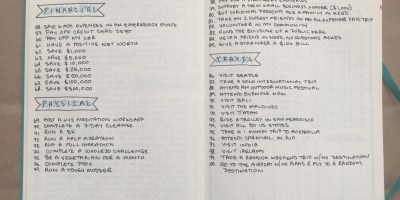 FINANCIAL
58. SAVE 6 MOS. EXPENSES IN AN EMERGENCY FUND
59. PAY OFF CREDIT CARD DEBT
60. PAY OFF MY CAR
61. HAVE A POSITIVE NET WORTH
62. SAVE $1,000
63. SAVE $5,000
64. SAVE $10,000
65. SAVE $25,000
66. SAVE $50,000
67. SAVE $100,000
68. SAVE $250,000
PHYSICAL
69. HOST A LIVE MEDITATION WORKSHOP
70. COMPLETE A 7-DAY CLEANSE
71. RUN A 5K
72. RUN A HALF MARATHON
73. RUN A FULL MARATHON
74. COMPLETE A WHOLE30 CHALLENGE
75. BE A VEGETARIAN FOR A MONTH
76. COMPLETE P90X
77. RUN A TOUGH MUDDER
SUPPORT A NEW SMALL BUSINESS OWNER ($1,000)
BUY CHRISTMAS PRESENTS FOR A FAMILY IN NEED
TAKE MY CLOSEST FRIENDS ON AN ALL EXPENSE PAID TRIP
VOLUNTEER IN MY COMMUNITY
FUND THE BUILDING OF A PUBLIC PARK
HELP A FRIEND IN NEED, NO QUESTIONS ASKED
GIVE A STRANGER A $100 BILL
TRAVEL
VISIT SEATTLE
TAKE A SOLO INTERNATIONAL TRIP
ATTEND AN OUTDOOR MUSIC FESTIVAL
ATTEND BURNING MAN
VISIT BALI
VISIT THE MALDIVES
VISIT JAPAN
RIDE A TROLLEY IN SAN FRANCISCO
VISIT ALL 50 US STATES
TAKE A 1 MONTH TRIP TO AUSTRALIA
ATTEND CARNIVAL IN RIO
VISIT INDIA
VISIT IRELAND
TAKE A RANDOM WEEKEND TRIP W/ NO DESTINATION
GO TO THE AIRPORT W/ NO PLANS & FLY TO A RANDOM
DESTINATION